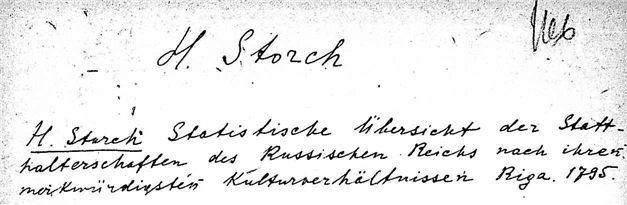 H. Storch
H. Storch Statistische Übersicht der Statt-
halterschaften des Russischen Reichs nach ihren
merkwürdigsten Kulturverhältnissen Riga. 1795.